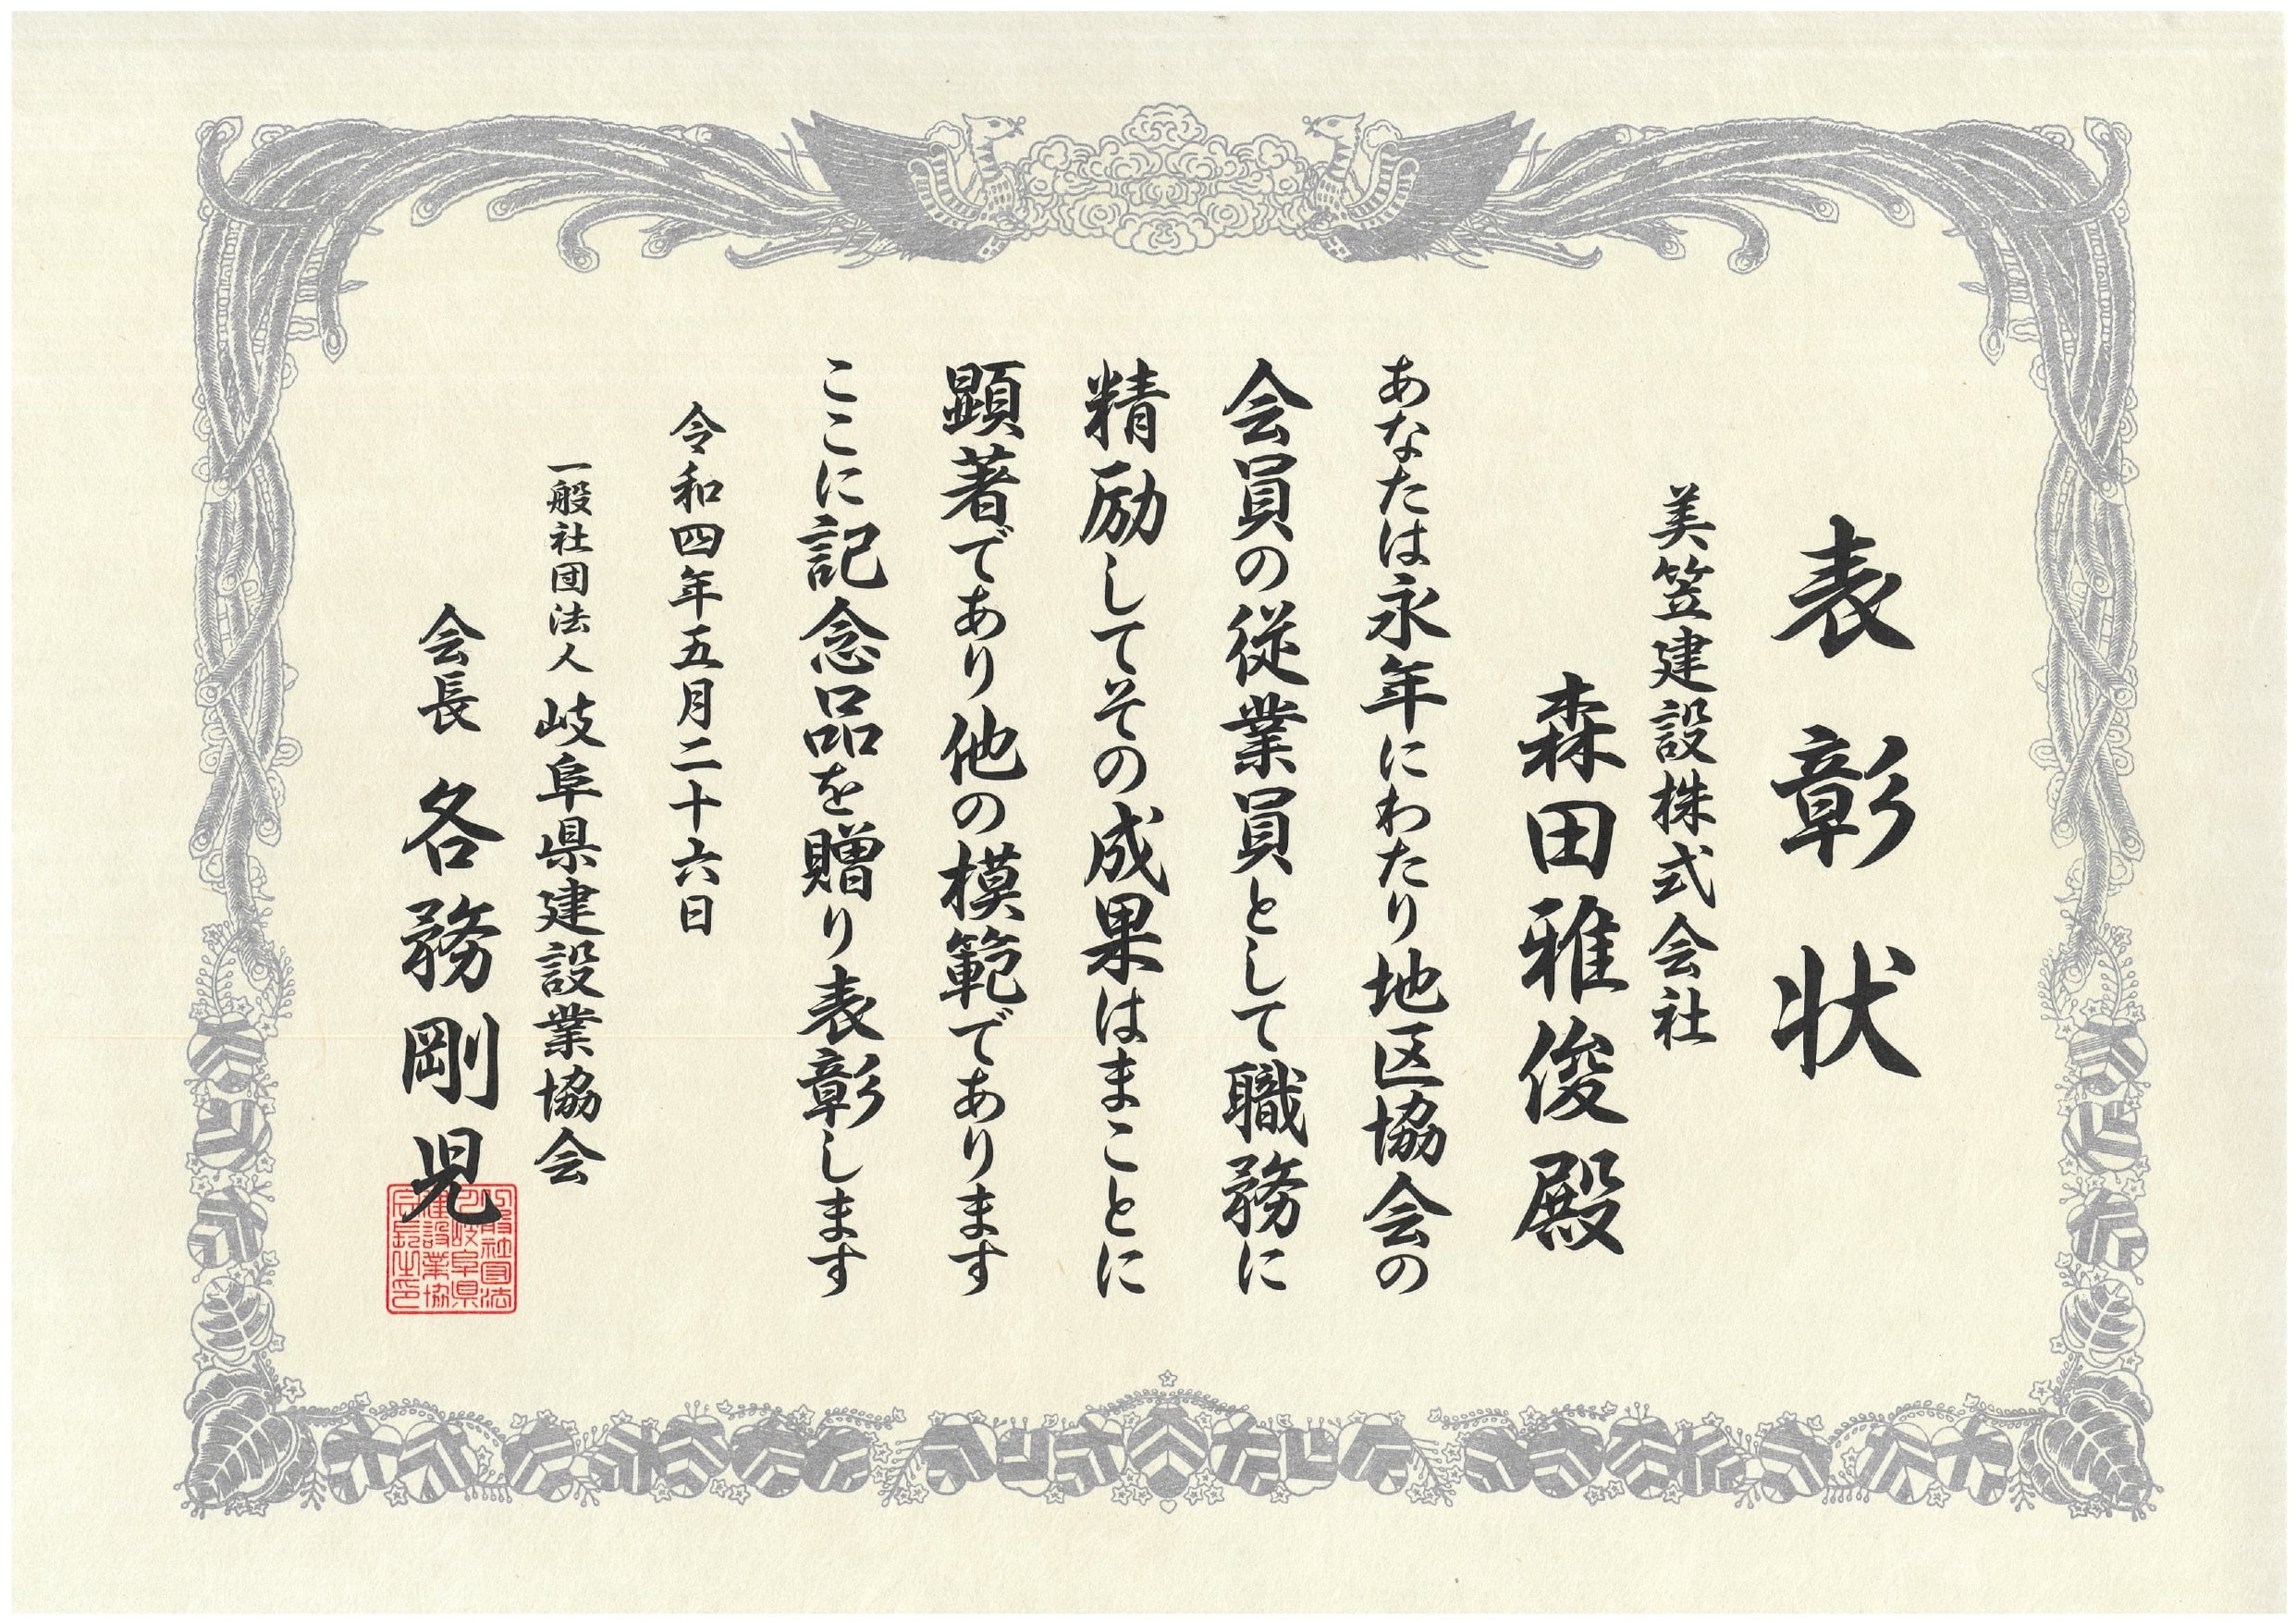 表彰状
美笠建設株式会社
森田雅俊殿
あなたは永年にわたり地区協会の
会員の従業員として職務に
精励してその成果はまことに
顕著であり他の模範であります
ここに記念品を贈り表彰します
令和四年五月二十六日
一般社団法人 岐阜県建設業協会
会長 各務剛児
一般社団法
人岐阜県
建設業協
会長之印